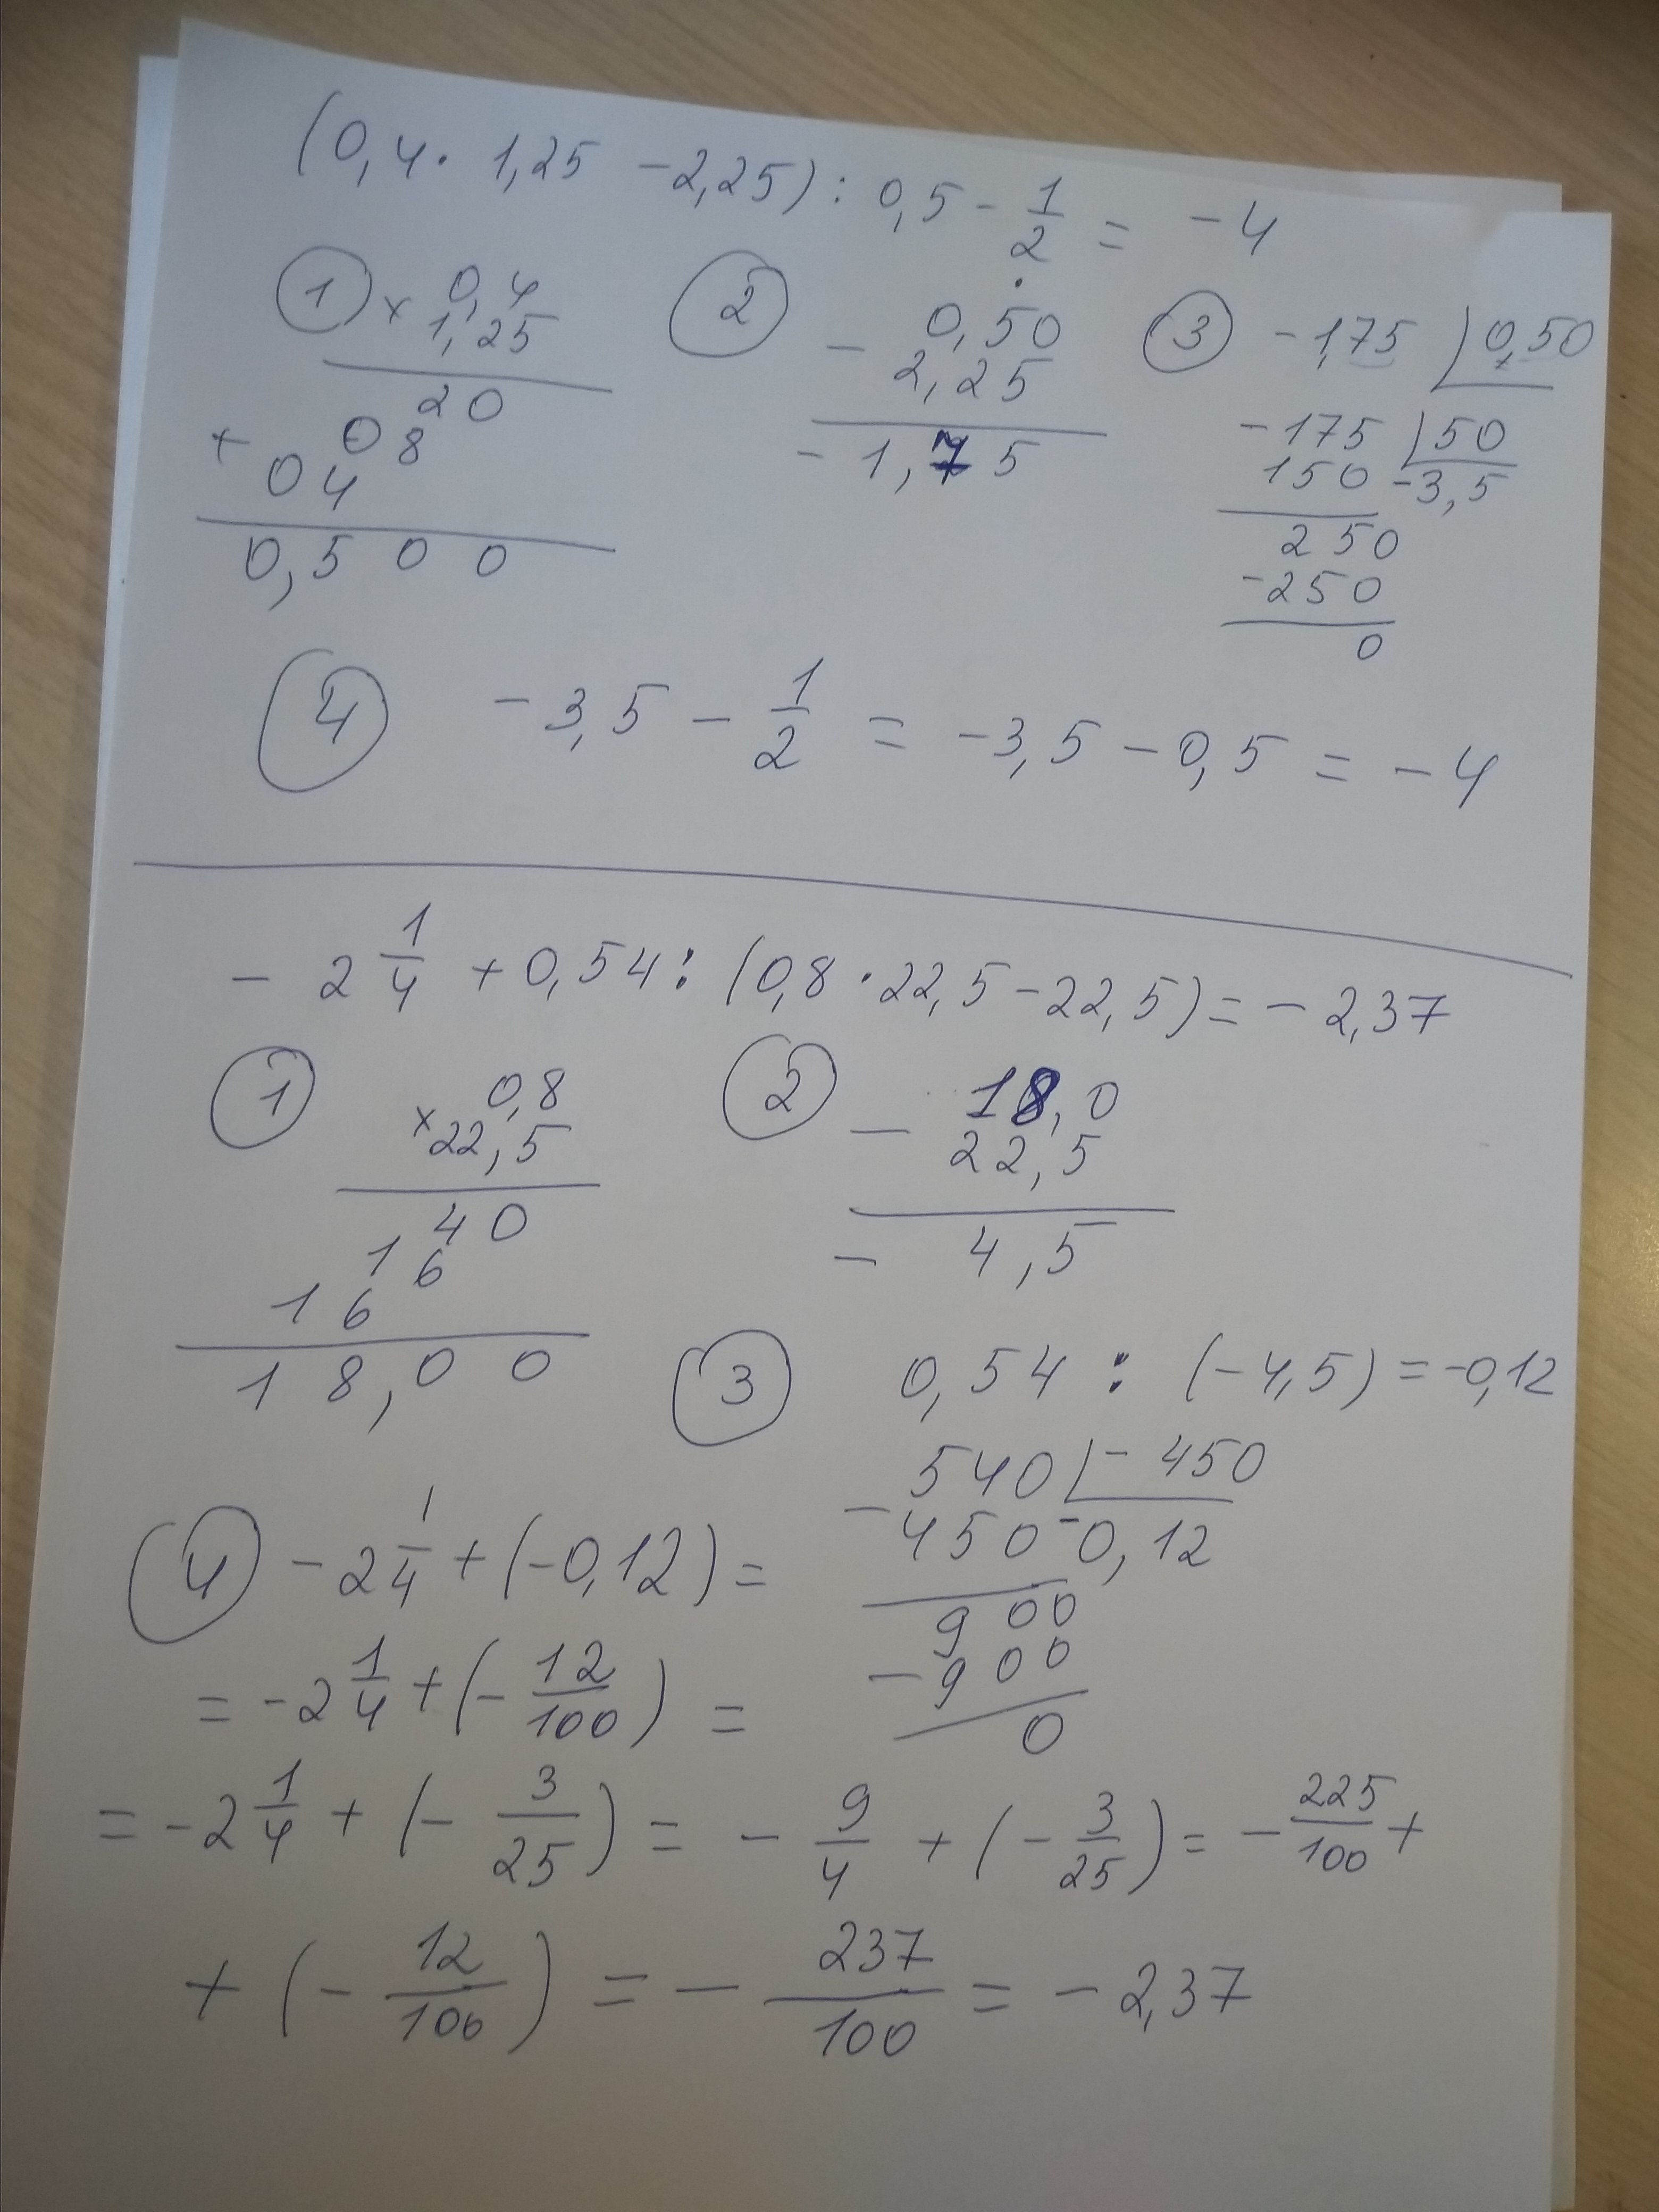 (0,4 · 1,25 - 2,25) : 0,5 - 1/2 = -4
① × 0,4
1,25
20
+ 08
04
0,500
② - 0,50
2,25
-1,75
③ -1,75 | 0,50
-175 | 50
150 -3,5
250
-250
0
④ -3,5 - 1/2 = -3,5 - 0,5 = -4
- 2 1/4 + 0,54 : (0,8 · 22,5 - 22,5) = -2,37
① × 0,8
22,5
40
16
16
18,00
② - 18,0
22,5
- 4,5
③ 0,54 : (-4,5) = -0,12
- 540 | - 450
450 -0,12
900
- 900
0
④ - 2 1/4 + (-0,12) =
= -2 1/4 + (- 12/100) =
= -2 1/4 + (- 3/25) = - 9/4 + (- 3/25) = - 225/100 +
+ (- 12/100) = - 237/100 = - 2,37